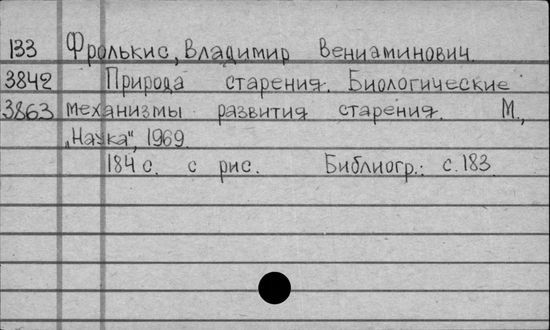 133 Фролькис, Владимир Вениаминович.
3842 Природа старения. Биологические
3863 механизмы развития старения. М.,
„Наука“, 1969.
184 с. с рис. Библиогр.: с. 183